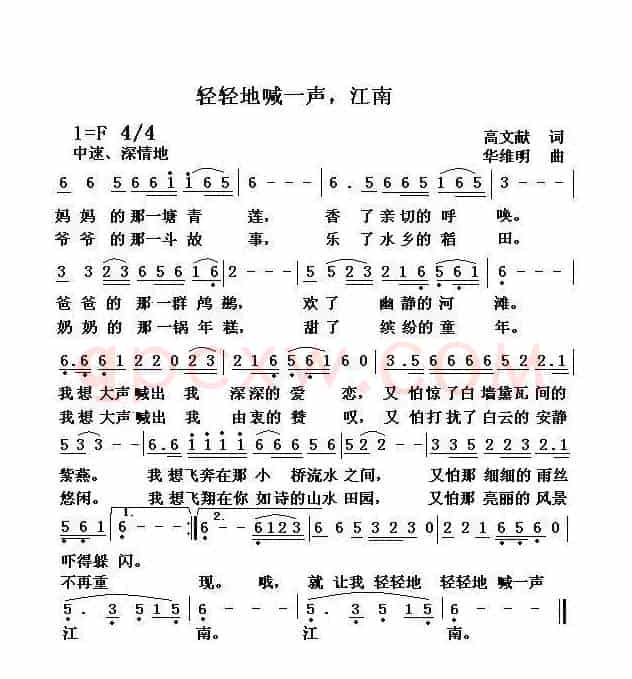 轻轻地喊一声，江南
1=F 4/4
高文献 词
中速、深情地
华维明 曲
6 6 5 6 6 i i 6 5 | 6 - - - | 6 . 5 6 6 5 1 6 5 | 3 - - -
妈妈的那一塘青 莲， 香了亲切的呼 唤。
爷爷的那一斗故 事， 乐了水乡的稻 田。
3 3 2 3 6 5 6 1 6 | 2 - - - | 5 5 5 2 3 2 1 6 5 6 1 | 6 - - -
爸爸的 那一群鸬鹚， 欢了 幽静的河 滩。
奶奶的 那一锅年糕， 甜了 缤纷的童 年。
6.6 6 1 2 2 0 2 3 | 2 1 6 5 6 1 6 0 | 3 .5 6 6 6 6 5 2 2.1
我想大声喊出 我 深深的爱 恋，又 怕惊了白墙黛瓦间的
我想大声喊出 我 由衷的赞 叹，又 怕打扰了白云的安静
5 3 - - | 6.6 i i i i 6 6 5 6 | 5 2 2 - | 3.5 6 5 2 2.1
紫燕。 我想飞奔在那小 桥流水之间， 又怕那 细细的雨丝
悠闲。 我想飞翔在你 如诗的山水田园， 又怕那 亮丽的风景
5 6 1 | 1. 6 - - - :| 2. 6 - - 6 1 2 3 | 6 6 5 3 2 3 0 | 2 1 6 5 6 0
吓得躲 闪。
不再重 现。 哦，就让我 轻轻地 轻轻地 喊一声
5 . 3 5 1 5 | 6 - - - | 5 . 3 5 1 5 | 6 - - - ‖
江 南。 江 南。